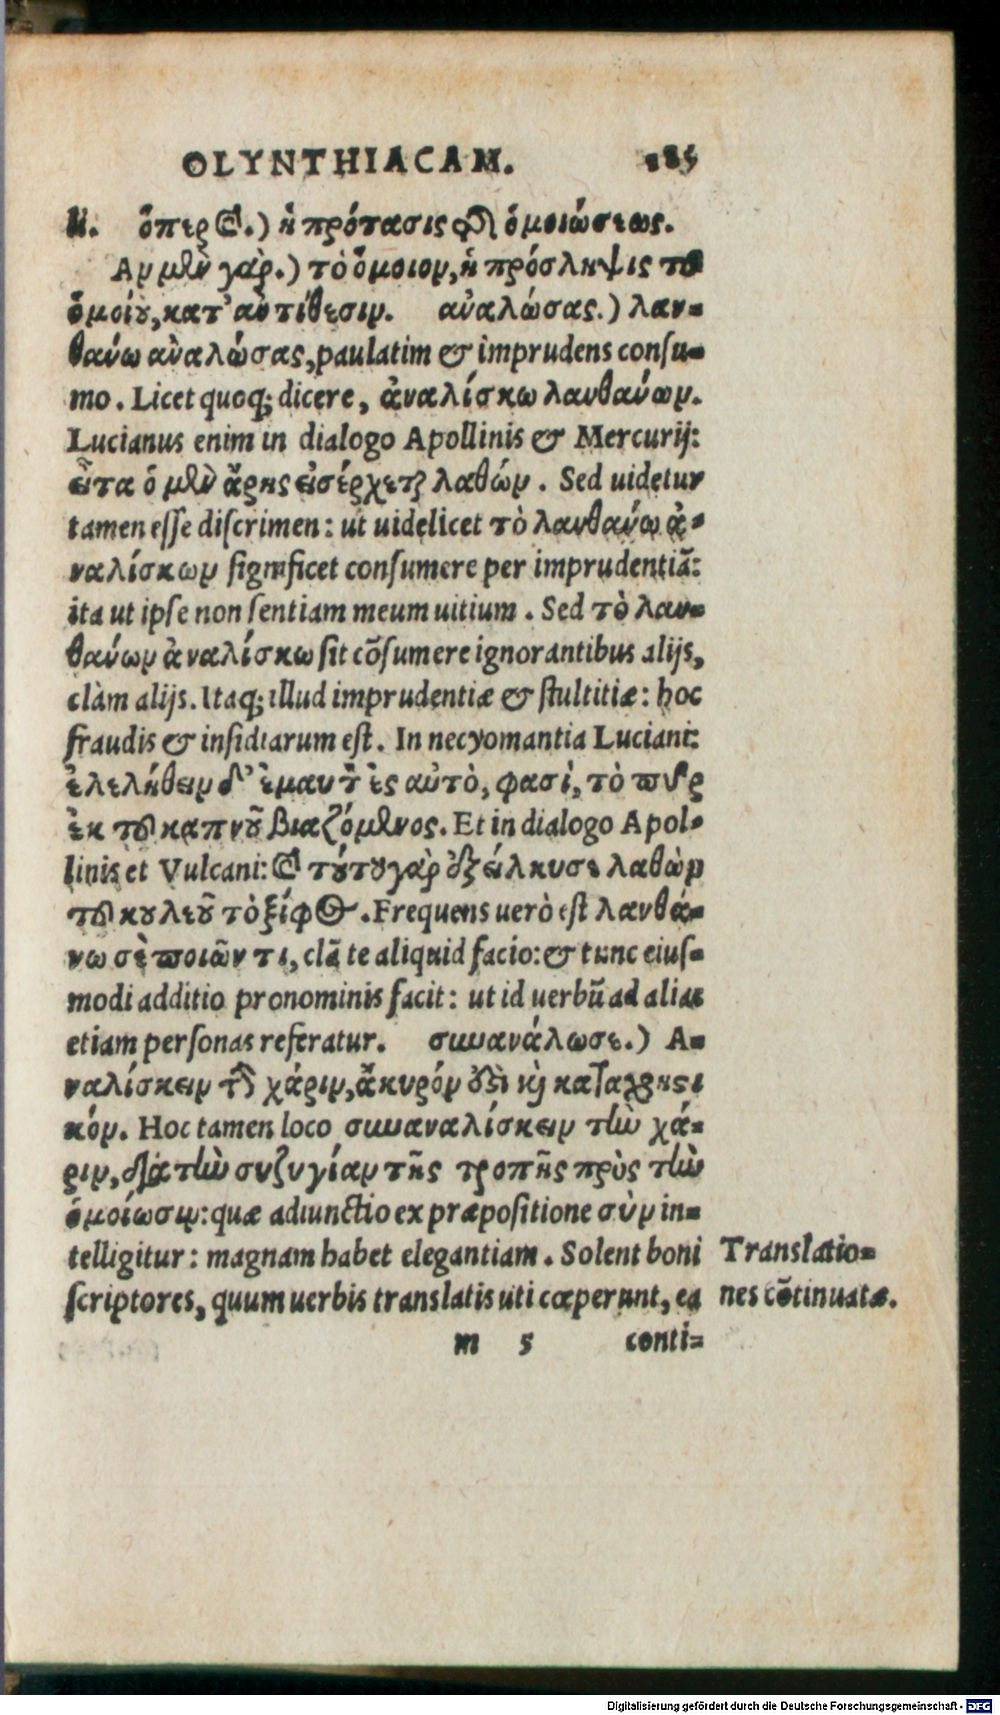 OLYNTHIACAM. 185
N. ὅπερ καὶ.) ἡ πρότασις τῆς ὁμοιώσεως.
Αν μὲν γὰρ.) τὸ ὅμοιον, ἡ πρόσληψις τοῦ
ὁμοίου, κατ' ἀντίθεσιν. ἀναλώσας.) λαν-
θάνω ἀναλώσας, paulatim & imprudens consu-
mo. Licet quoq; dicere, ἀναλίσκω λανθάνων.
Lucianus enim in dialogo Apollinis & Mercurij:
εἶτα ὁ μὲν ἄρης εἰσέρχεται λαθών. Sed uidetur
tamen esse discrimen: ut uidelicet τὸ λανθάνω ἀ-
ναλίσκων significet consumere per imprudentiã:
ita ut ipse non sentiam meum uitium. Sed τὸ λαν-
θάνων ἀναλίσκω sit cõsumere ignorantibus alijs,
clàm alijs. Itaq; illud imprudentiæ & stultitiæ: hoc
fraudis & insidiarum est. In necyomantia Luciani:
ἐλελήθειν δ' ἐμαυτὸν ἐς αὐτὸ, φασὶ, τὸ πῦρ
ἐκ τοῦ καπνοῦ βιαζόμενος. Et in dialogo Apol-
linis et Vulcani: καὶ τούτου γὰρ ἐξείλκυσε λαθὼν
τοῦ κουλεοῦ τὸ ξίφος. Frequens uerò est λανθά-
νω σὲ ποιῶν τι, clã te aliquid facio: & tunc eius-
modi additio pronominis facit: ut id uerbũ ad alias
etiam personas referatur. συνανάλωσε.) Α-
ναλίσκειν τὴν χάριν, ἄκυρόν ἐστι καὶ καταχρηστι
κόν. Hoc tamen loco συναναλίσκειν τὴν χά-
ριν, διὰ τὴν συζυγίαν τῆς τροπῆς πρὸς τὴν
ὁμοίωσιν: quæ adiunctio ex præpositione σὺν in-
telligitur: magnam habet elegantiam. Solent boni
scriptores, quum uerbis translatis uti cœperunt, ea
Translatio-
nes cõtinuatæ.
m 5 conti-
Digitalisierung gefördert durch die Deutsche Forschungsgemeinschaft - DFG